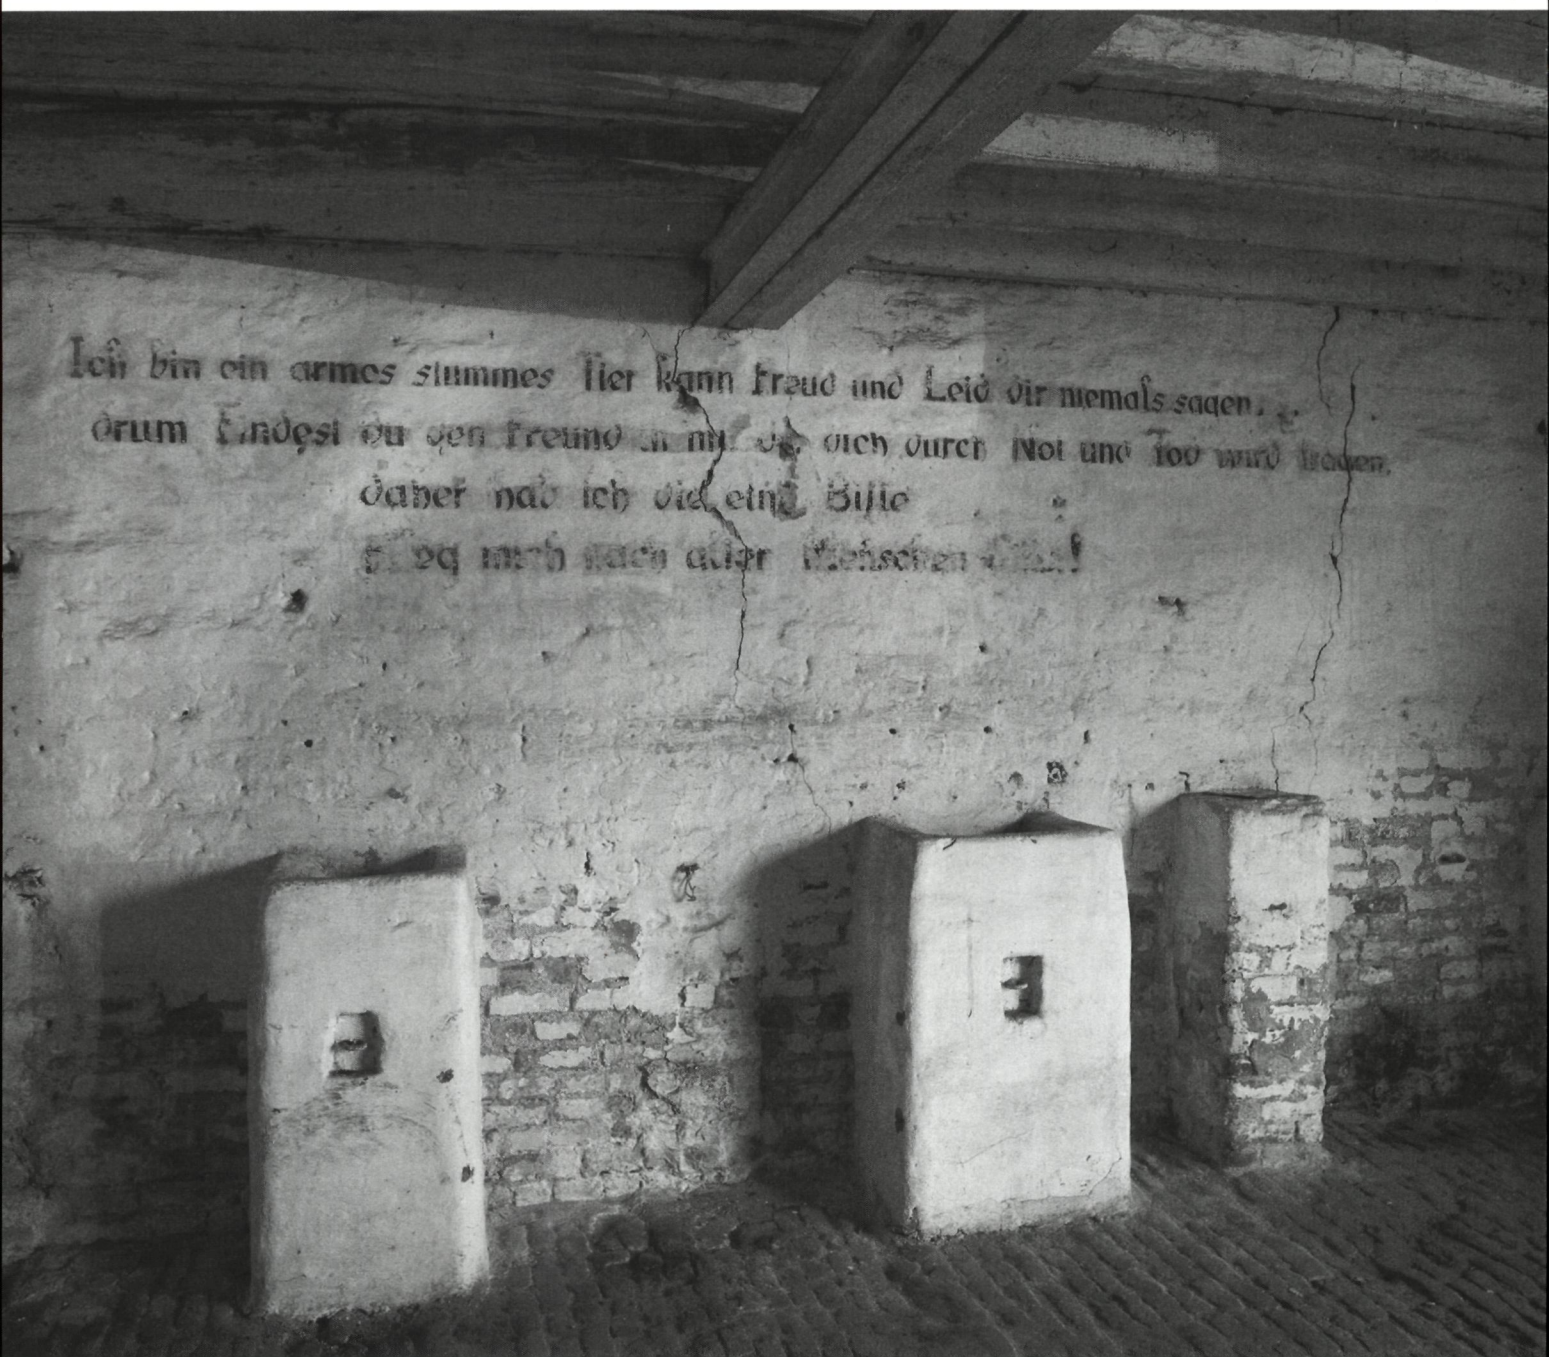 Ich bin ein armes stummes Tier kann Freud und Leid dir niemals sagen,
drum findest du den Freund in mir der dich durch Not und Tod wird tragen.
daher hab ich die eine Bitte
pfleg mich nach alter Menschen